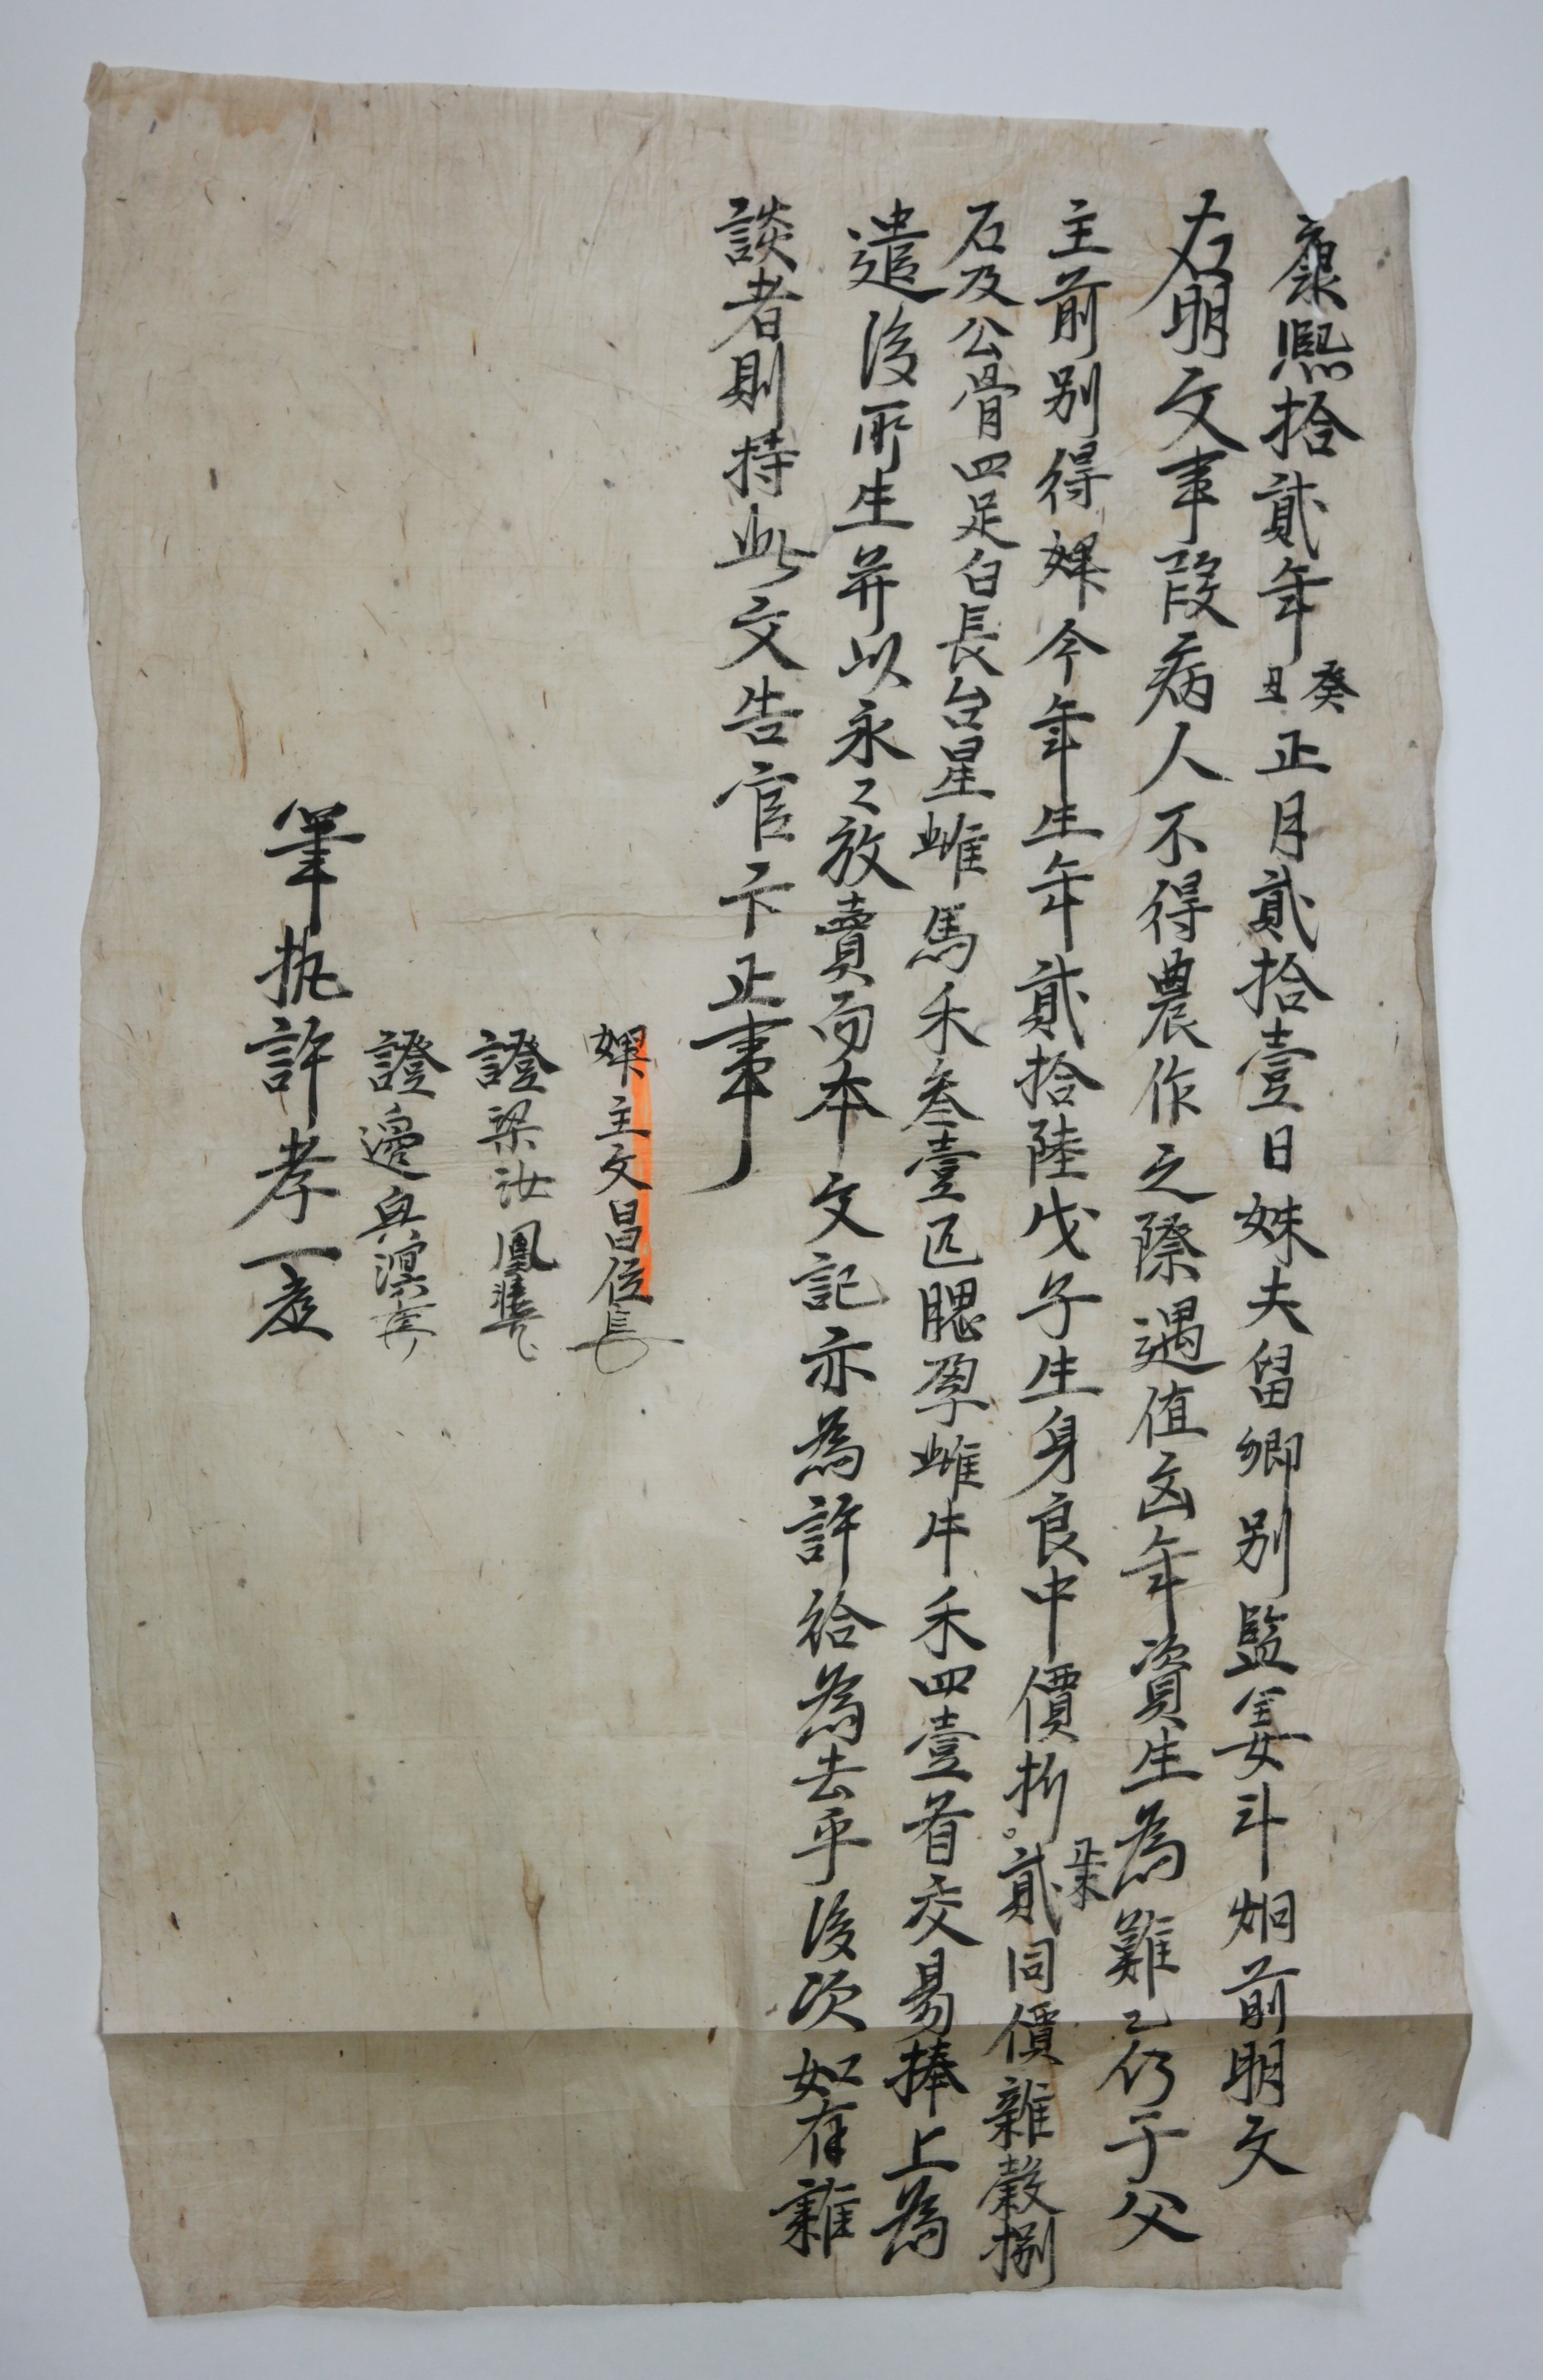 康熙拾貳年癸丑正月貳拾壹日妹夫留鄉別監姜斗炯前明文
右明文事段病人不得農作之際遇值凶年資生為難乙仍于父
主前別得婢今年生年貳拾陸戊子生身良中價折正木貳同價雜穀捌
石及公骨四足白長台星雌馬禾叄壹匹腮孕雌牛禾四壹首交易捧上為
遣後所生并以永〻放賣而本文記亦為許給為去乎後次如有雜
談者則持此文告官卞正事
婢主文昌位
證梁汝鳳
證邊興溟
筆執許孝一